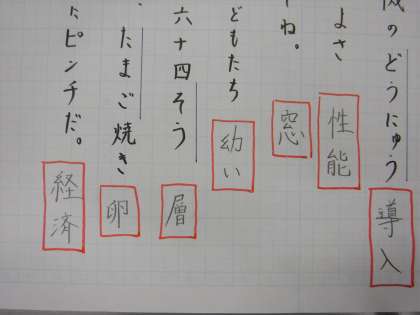 のどうにゅう
導入
よさ
性能
ね。
窓
どもたち
幼い
六十四そう
層
たまご焼き
卵
ピンチだ。
経済